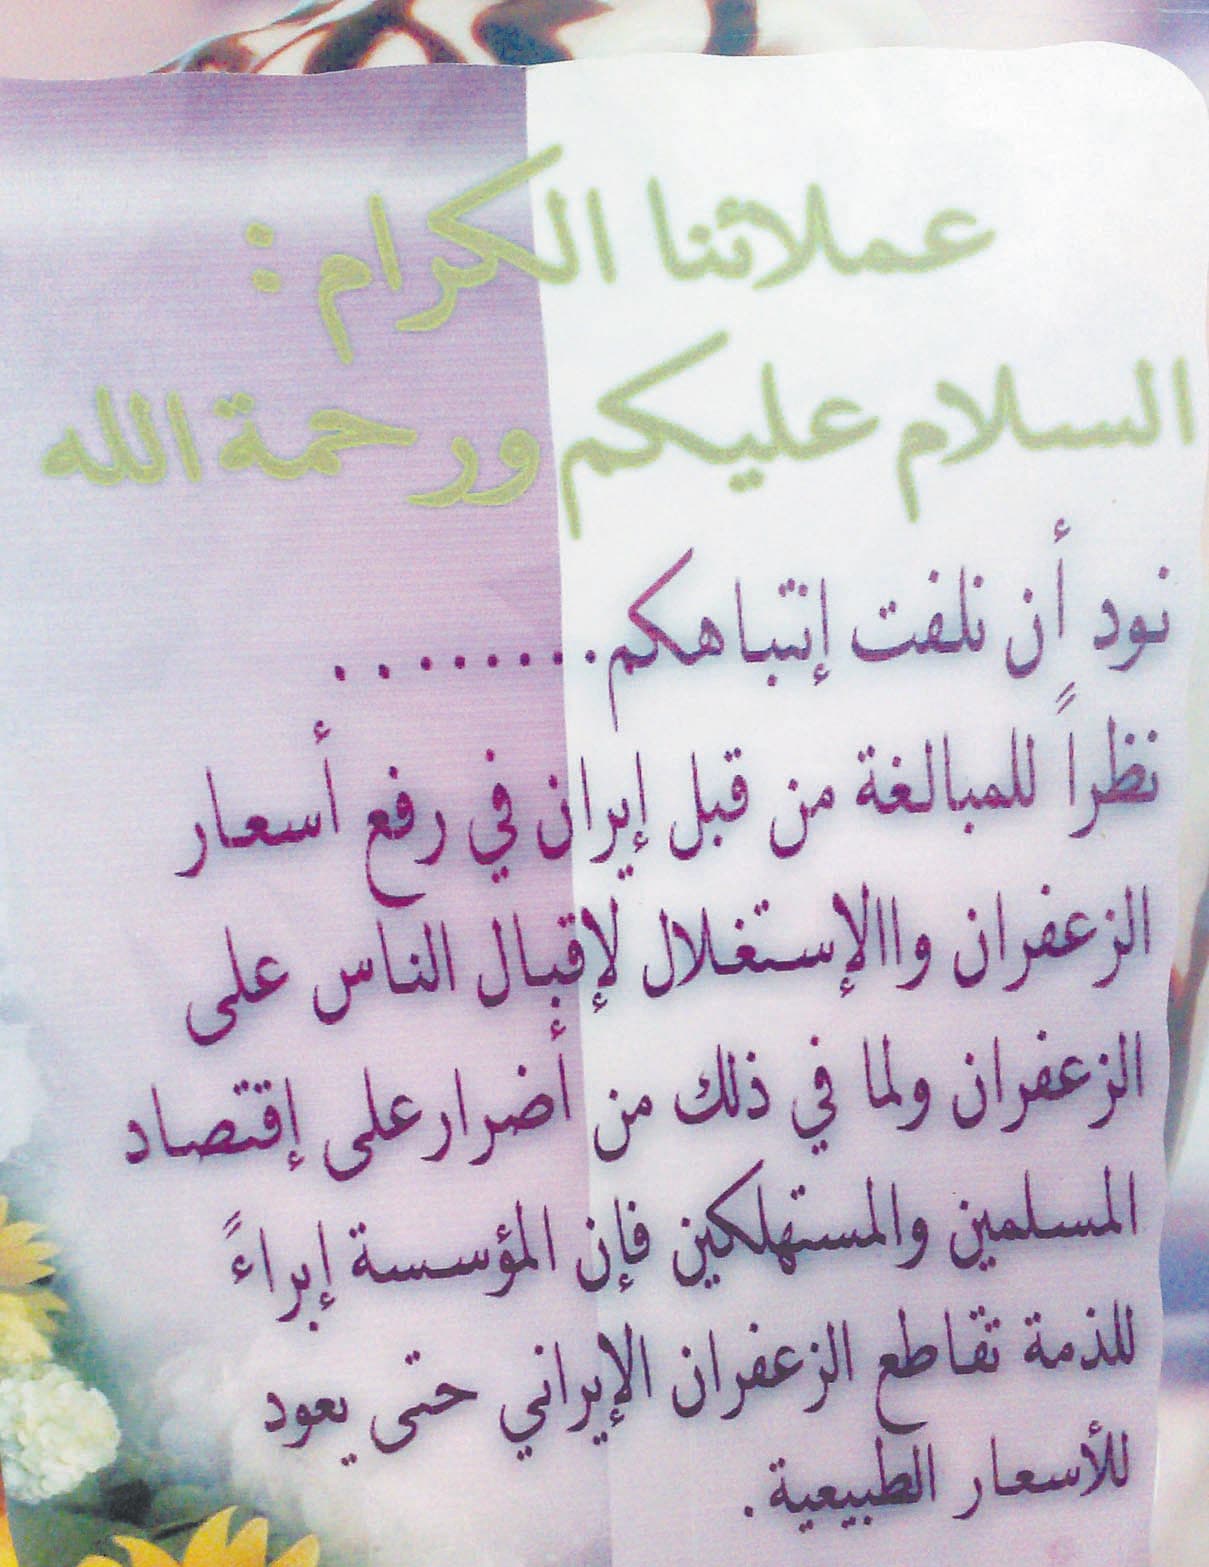 عملائنا الكرام :
السلام عليكم ورحمة الله
نود أن نلفت إنتباهكم........
نظراً للمبالغة من قبل إيران في رفع أسعار
الزعفران واالإستغلال لإقبال الناس على
الزعفران ولما في ذلك من أضرار على إقتصاد
المسلمين والمستهلكين فإن المؤسسة إبراءً
للذمة تقاطع الزعفران الإيراني حتى يعود
للأسعار الطبيعية .